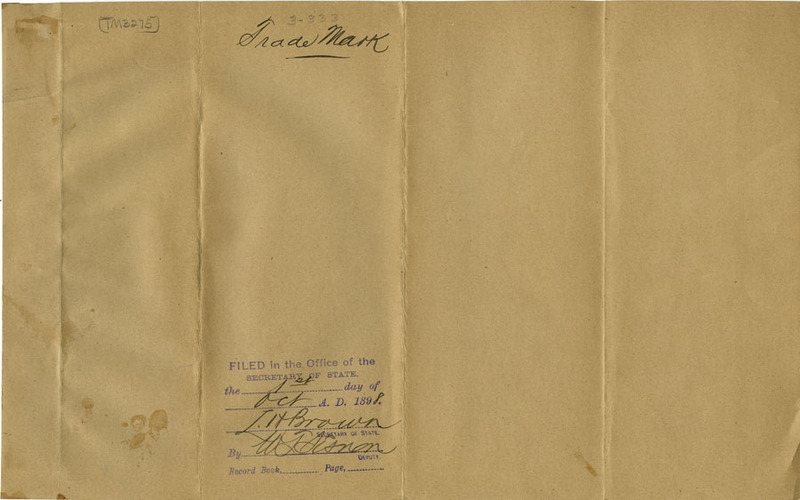 TM3275
3-333
Trade Mark
FILED in the Office of the
SECRETARY OF STATE.
the 1st day of
Oct A. D. 1898.
L. H. Brown
SECRETARY OF STATE.
By
DEPUTY.
Record Book, Page,